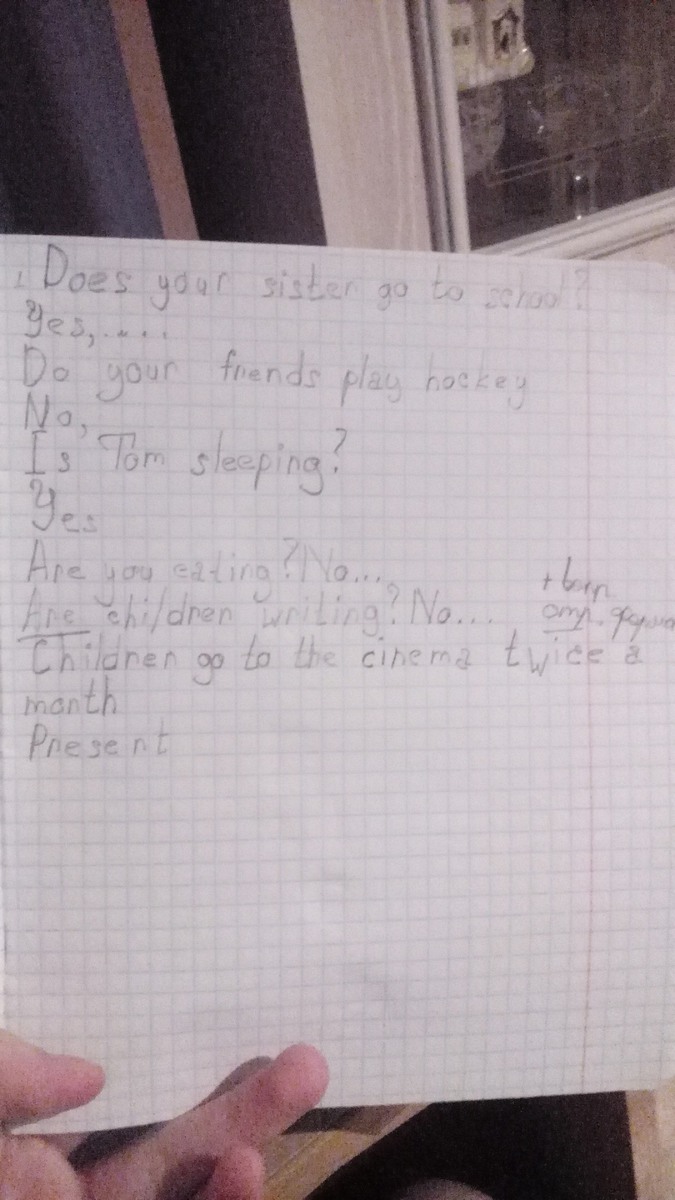 1 Does your sister go to school?
Yes,.....
Do your friends play hockey
No,
Is Tom sleeping?
Yes
Are you eating? No...
+ вопр
Are children writing? No... отр. форма
Children go to the cinema twice a
month
Present